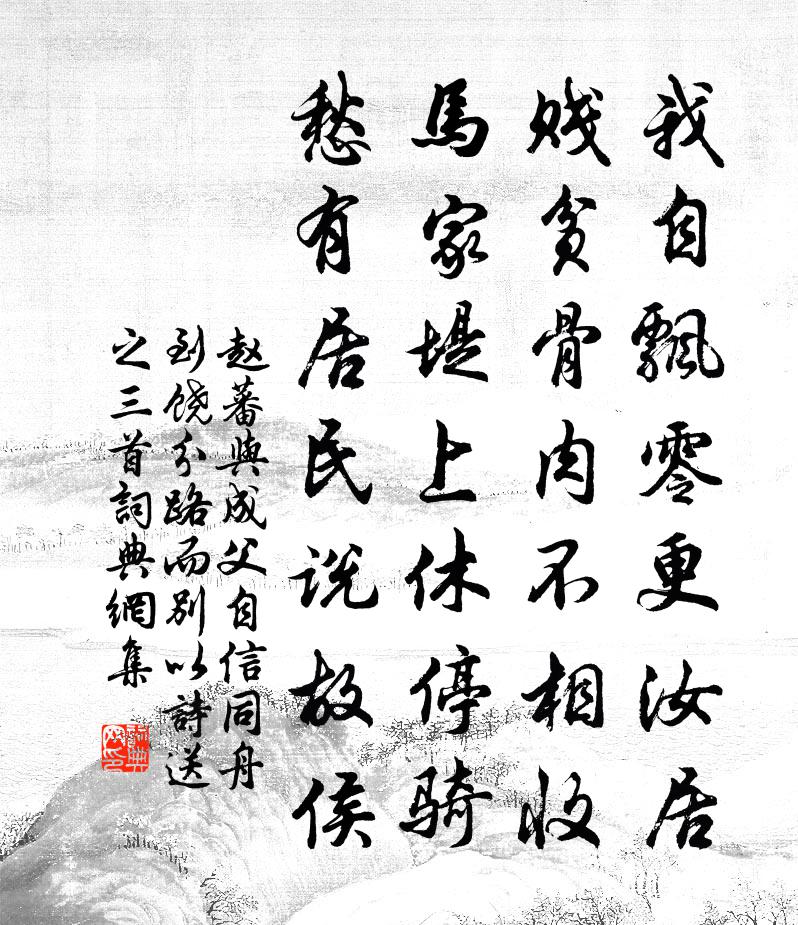 我自飄零更汝居
賤貧骨肉不相收
馬家堤上休停騎
愁有居民说故侯
赵蕃與成父自信同舟
到饶分路而别以詩送
之三首詞典網集